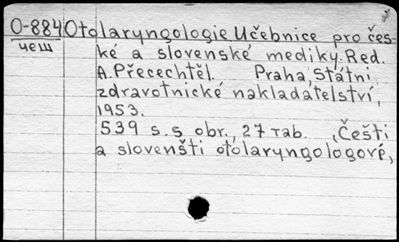 O-884 Otolaryngologie Učebnice pro čes-
чеш ké a slovenské mediky. Red.
A. Přecechtěl. Praha, Státni
zdravotnické nakladatelství,
1953.
539 s. s obr., 27 таб. , Čeští
a slovenšti otolaryngologové,